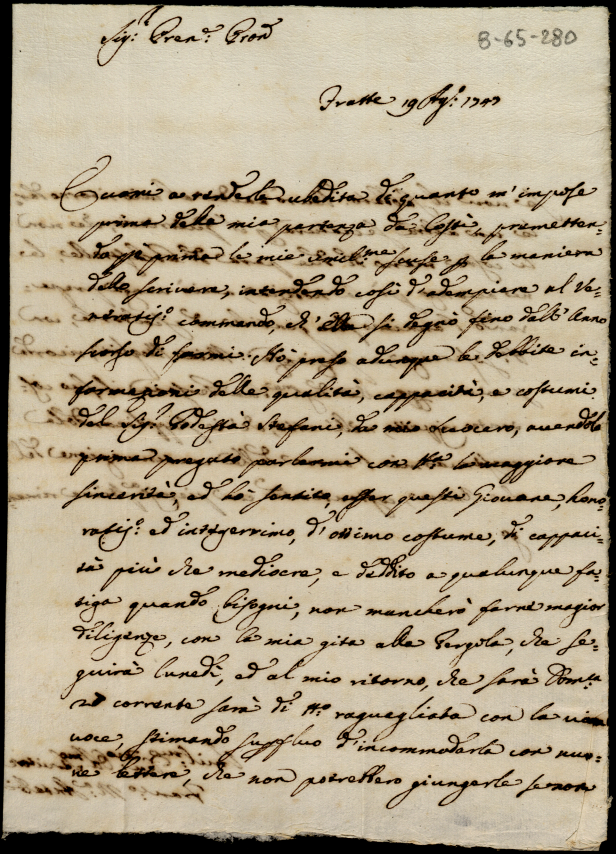 8-65-280
Sig.r Pren.e Pron
Fratte 19 Ag.o 1747
Eccomi a renderla ubbidita di quanto m'impose
prima della mia partenza da Costì, premetten-
do però prima le mie umil.me scuse p la maniera
dello scrivere, intendendo così d'adempiere al Ve-
neratis.o commando, ch'ella si degnò fino dall'Anno
scorso di farmi. Hò preso adunque le debbite in-
formazioni delle qualità, cappacità, e costumi
del Sig.r Podestà Stefani, da mio Suocero, avendolo
prima pregato parlarmi con tta la maggiore
sincerità, ed hò sentito, esser questi Giovane, hono-
ratis.o ed integerrimo, d'ottimo costume, di cappaci-
tà più che mediocre, e dedito a qualunque fa-
tiga quando bisogni, non mancherò farne magior
diligenze, con la mia gita alla Pergola, che se-
guirà lunedì, ed al mio ritorno, che sarà Dom.ca
corrente sarà di tto raguagliata con la viva
voce, stimando supfluo d'incommodarla con nuo-
ve lettere, che non potrebbero giungerle se non